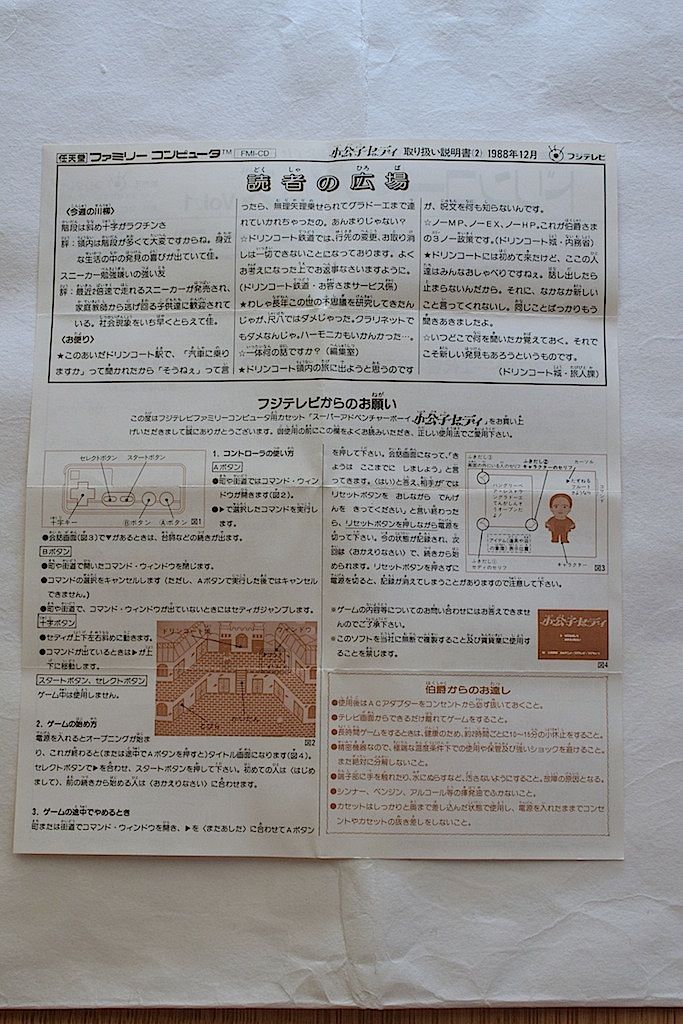 任天堂 ファミリー コンピュータ™ FMI-CD
小公子セディ 取り扱い説明書(2) 1988年12月 フジテレビ
読者の広場
〈今週の川柳〉
階段は斜め十字がラクチンさ
評：領内は階段が多くて大変ですからね。身近
な生活の中の発見の喜びが出ていて佳。
スニーカー勉強嫌いの強い友
評：最近2倍速で走れるスニーカーが発売され、
家庭教師から逃げ回る子供達に歓迎されて
いる。社会現象をいち早くとらえて佳。
〈お便り〉
★このあいだドリンコート駅で、「汽車に乗り
ますか」って聞かれたから「そうねぇ」って言
ったら、無理矢理乗せられてグラドーエまで連
れていかれちゃったの。あんまりじゃない？
☆ドリンコート鉄道では、行先の変更、お取り消
しは一切できないことになっております。よく
お考えになった上でお返事なさいますように。
(ドリンコート鉄道・お客さまサービス係)
★わしゃ長年この世の不思議を研究してきたん
じゃが、尺八ではダメじゃった。クラリネットで
もダメなんじゃ。ハーモニカもいかんかった…。
☆一体何の話ですか？（編集室）
★ドリンコート領内の旅に出ようと思うのです
が、呪文を何も知らないんです。
☆ノーMP、ノーEX、ノーHP。これが伯爵さま
の3ノー政策です。(ドリンコート城・内務省)
★ドリンコートには初めて来たけど、ここの人
達はみんなおしゃべりですねぇ。話し出したら
止まらないんだから。それに、なかなか新しい
こと言ってくれないし。同じことばっかりもう
聞きあきましたよ。
☆いつどこで何を聞いたか覚えておく。それで
こそ新しい発見もあろうというものです。
(ドリンコート城・旅人課)
フジテレビからのお願い
この度はフジテレビファミリーコンピュータ用カセット「スーパーアドベンチャーボーイ 小公子セディ」をお買い上
げいただきまして誠にありがとうございます。御使用の前にこの欄をよくお読みいただき、正しい使用法でご愛用下さい。
セレクトボタン スタートボタン
十字キー Ⓑボタン Ⓐボタン 図1
1. コントローラの使い方
Aボタン
●町や街道ではコマンド・ウィン
ドウが開きます(図2)。
●▶で選択したコマンドを実行し
ます。
●会話画面(図3)で▼があるときは、台詞などの続きが出ます。
Bボタン
●町や街道で開いたコマンド・ウィンドウを閉じます。
●コマンドの選択をキャンセルします(ただし、Aボタンで実行した後ではキャンセル
できません。)
●町や街道で、コマンド・ウィンドウが出ていないときにはセディがジャンプします。
十字ボタン
●セディが上下左右斜めに動きます。
●コマンドが出ているときは▶が上
下に移動します。
スタートボタン、セレクトボタン
ゲーム中は使用しません。
図2
2. ゲームの始め方
電源を入れるとオープニングが始ま
り、これが終わると(または途中でAボタンを押すと)タイトル画面になります(図4)。
セレクトボタンで▶を合わせ、スタートボタンを押して下さい。初めての人は〈はじめ
まして〉、前の続きから始める人は〈おかえりなさい〉に合わせます。
3. ゲームの途中でやめるとき
町または街道でコマンド・ウィンドウを開き、▶を〈またあした〉に合わせてAボタン
を押して下さい。会話画面になって、「き
ょうは ここまでに しましょう」と言っ
てきます。〈はい〉と答え、相手が「では
リセットボタンを おしながら でんげ
んを きってください」と言い終わった
ら、リセットボタンを押しながら電源を
切って下さい。今の状態が記録され、次
回は〈おかえりなさい〉で、続きから始
められます。リセットボタンを押さずに
電源を切ると、記録が消えてしまうことがありますので注意して下さい。
カーソル
キャラクター
図3
＊ゲームの内容等についてのお問い合わせにはお答えできませ
んのでご了承下さい。
＊このソフトを当社に無断で複製すること及び賃貸業に使用す
ることを禁じます。
小公子セディ
図4
伯爵からのお達し
●使用後はACアダプターをコンセントから必ず抜いておくこと。
●テレビ画面からできるだけ離れてゲームをすること。
●長時間ゲームをするときは、健康のため、約2時間ごとに10〜15分の小休止をすること。
●精密機器なので、極端な温度条件下での使用や保管及び強いショックを避けること。
また絶対に分解しないこと。
●端子部に手を触れたり、水にぬらすなど、汚さないようにすること。故障の原因となる。
●シンナー、ベンジン、アルコール等の揮発油でふかないこと。
●カセットはしっかりと奥まで差し込んだ状態で使用し、電源を入れたままでコンセ
ントやカセットの抜き差しをしないこと。